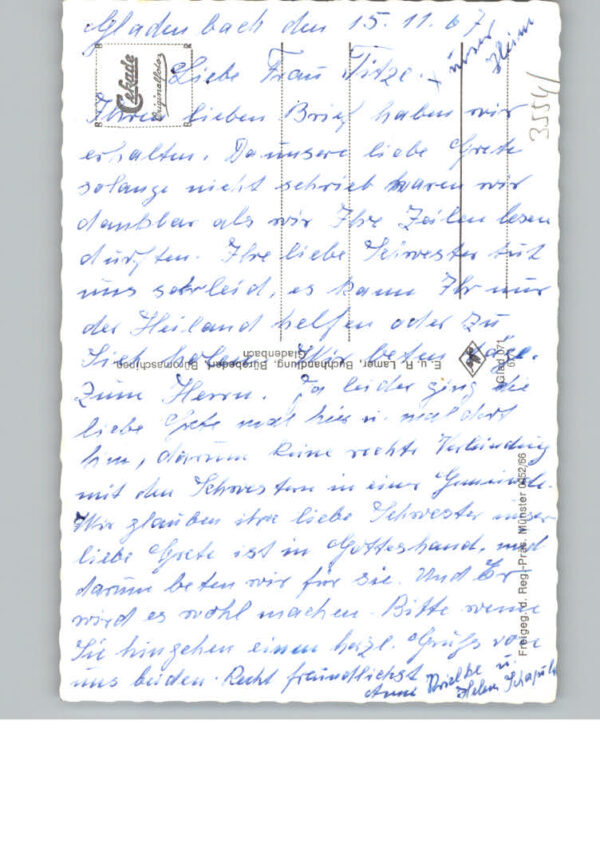 Gladenbach den 15.11.67
x unser Heim
Liebe Frau Titze.
Ihren lieben Brief haben wir
erhalten. Da unsere liebe Grete
solange nicht schrieb waren wir
dankbar als wir Ihre Zeilen lesen
durften. Ihre liebe Schwester tut
uns sehr leid, es kann Ihr nur
der Heiland helfen oder zu
Sich holen. Wir beten
zum Herrn. Ja leider ging die
liebe Grete mal hier u. mal dort
hin, darum keine rechte Verbindung
mit den Schwestern in einer Gemeinde.
Wir glauben ihre liebe Schwester unser
liebe Grete ist in Gotteshand, und
darum beten wir für sie. Und Er
wird es wohl machen. Bitte wenn
Sie hingehen einen herzl. Gruß von
uns beiden. Recht freundlichst
Anni u.
Helene
Cekade
Originalfoto
R
R
R
R
E. u. R. Lamer, Buchhandlung, Bürobedarf, Büromaschinen
Gladenbach
Glad 071
Freigeg. d. Reg.-Präs. Münster 0452/66